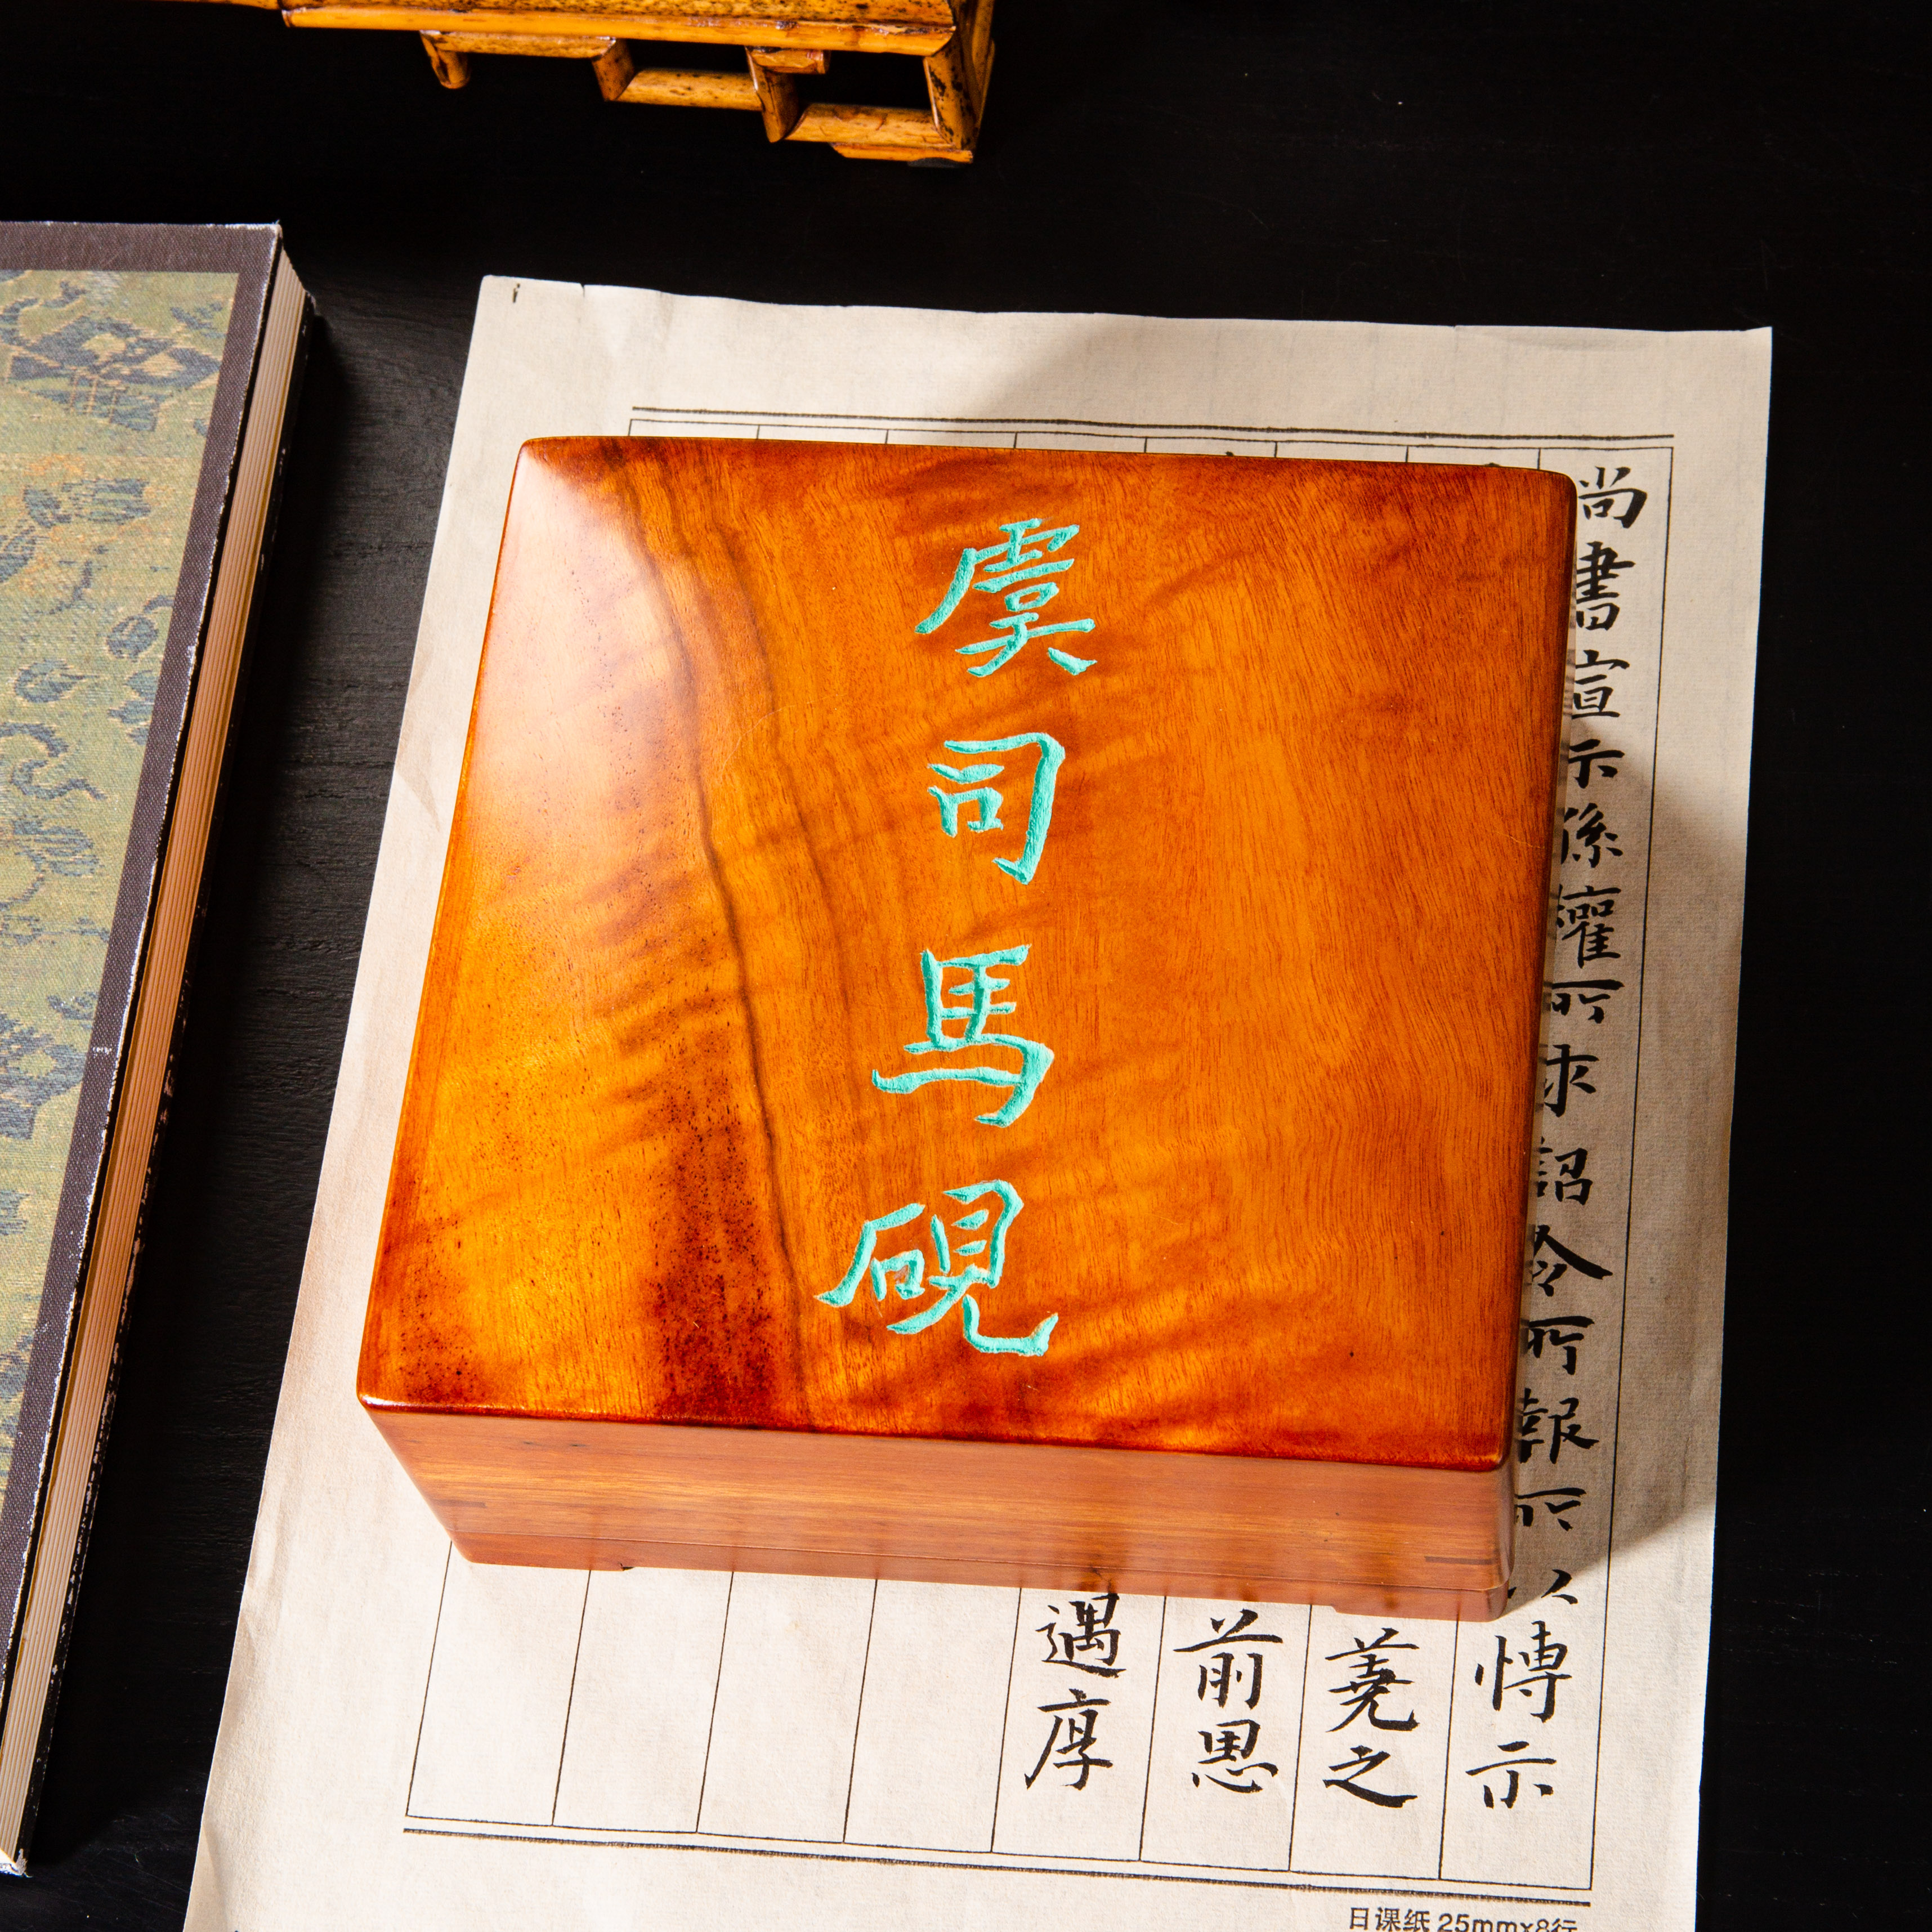 虞司馬硯
尚書宣示孫權所求詔令所報所以博示
蕘之
前恩
遇厚
日课纸 25mm×8行